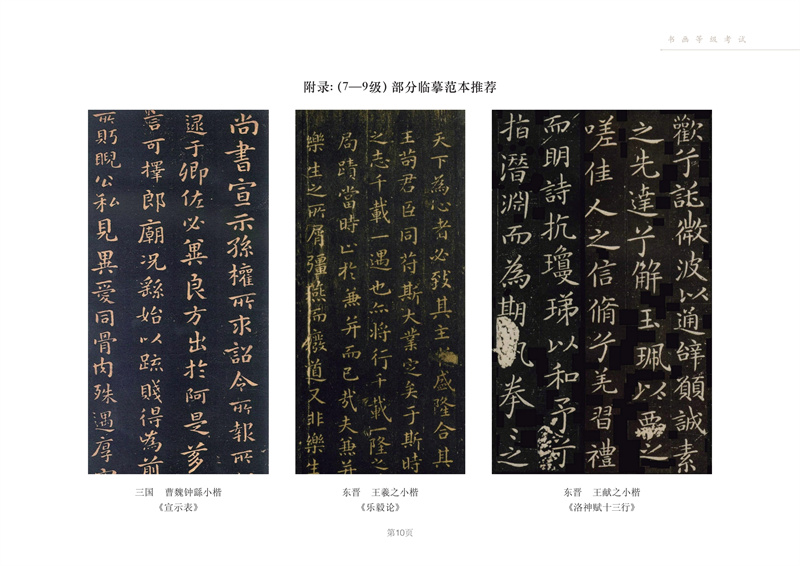 书画等级考试
附录：（7—9级）部分临摹范本推荐
尚書宣示孫權所求詔令所報所
逮于卿佐必冀良方出於阿是芻
言可擇郎廟況繇始以疏賤得為前
所眄睨公私見異愛同骨肉殊遇厚
天下為心者必致其主於盛隆合其
王苟君臣同苻斯大業定矣于斯時
之志千載一遇也亦將行千載一隆之
局蹟當時止於兼并而已哉夫兼并
樂生之所屑彊燕而廢道又非樂生
歡兮託微波以通辭願誠素
之先達兮解玉珮以要之
嗟佳人之信脩兮羌習禮
而明詩抗瓊珶以和予兮
指潛淵而為期執拳〻之
三国 曹魏钟繇小楷
《宣示表》
东晋 王羲之小楷
《乐毅论》
东晋 王献之小楷
《洛神赋十三行》
第10页